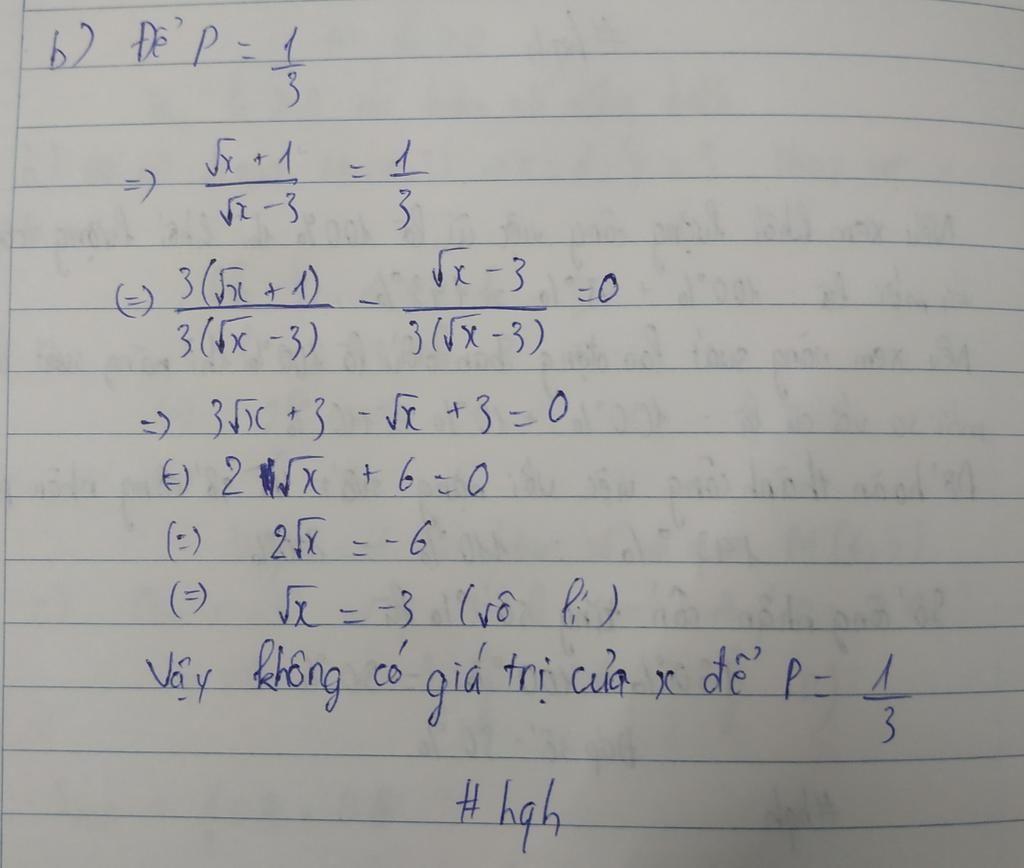 b) Để P = 1/3
=> (√x + 1)/(√x - 3) = 1/3
(=) 3(√x + 1)/3(√x - 3) - (√x - 3)/3(√x - 3) = 0
=> 3√x + 3 - √x + 3 = 0
(=) 2√x + 6 = 0
(=) 2√x = -6
(=) √x = -3 (vô lí)
Vậy không có giá trị của x để P = 1/3
# hgh